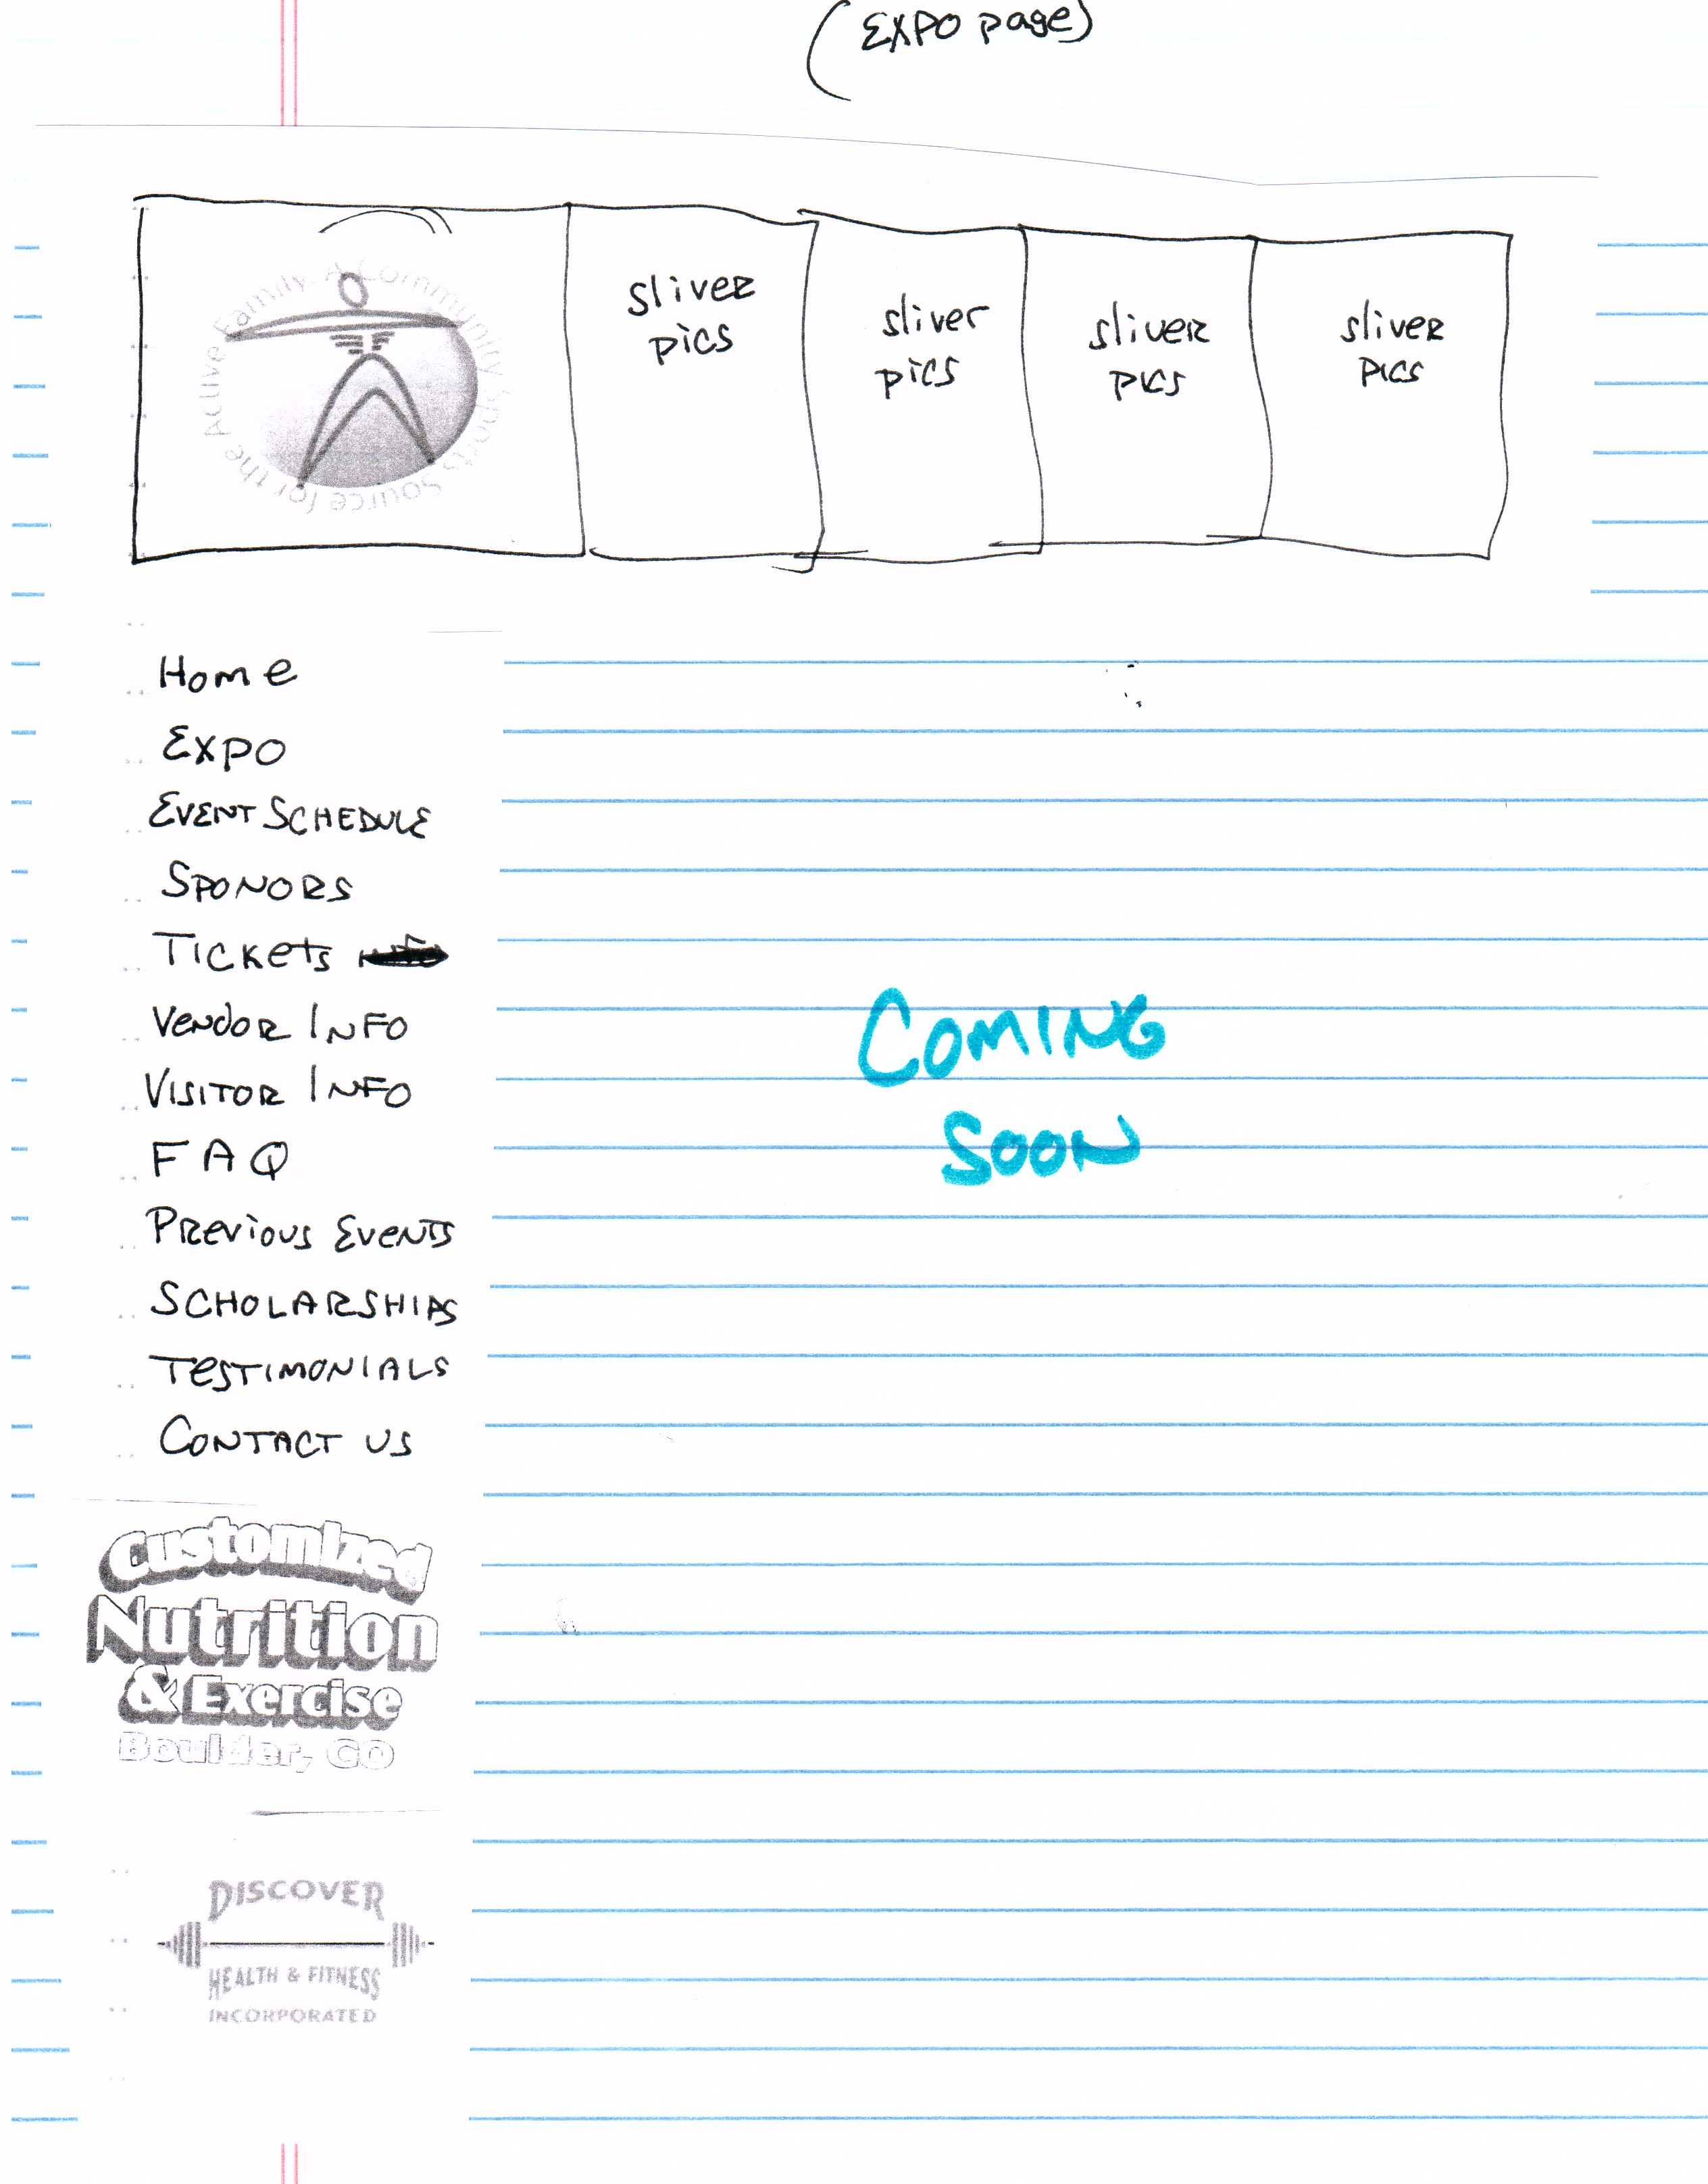 (EXPO page)
Active Family. A Community Sports Source for the
sliver
pics
sliver
pics
sliver
pics
sliver
pics
Home
EXPO
EVENT SCHEDULE
SPONORS
TICKETS
VENDOR INFO
VISITOR INFO
FAQ
PREVIOUS EVENTS
SCHOLARSHIPS
TESTIMONIALS
CONTACT US
Customized
Nutrition
& Exercise
Boulder, CO
DISCOVER
HEALTH & FITNESS
INCORPORATED
COMING
SOON